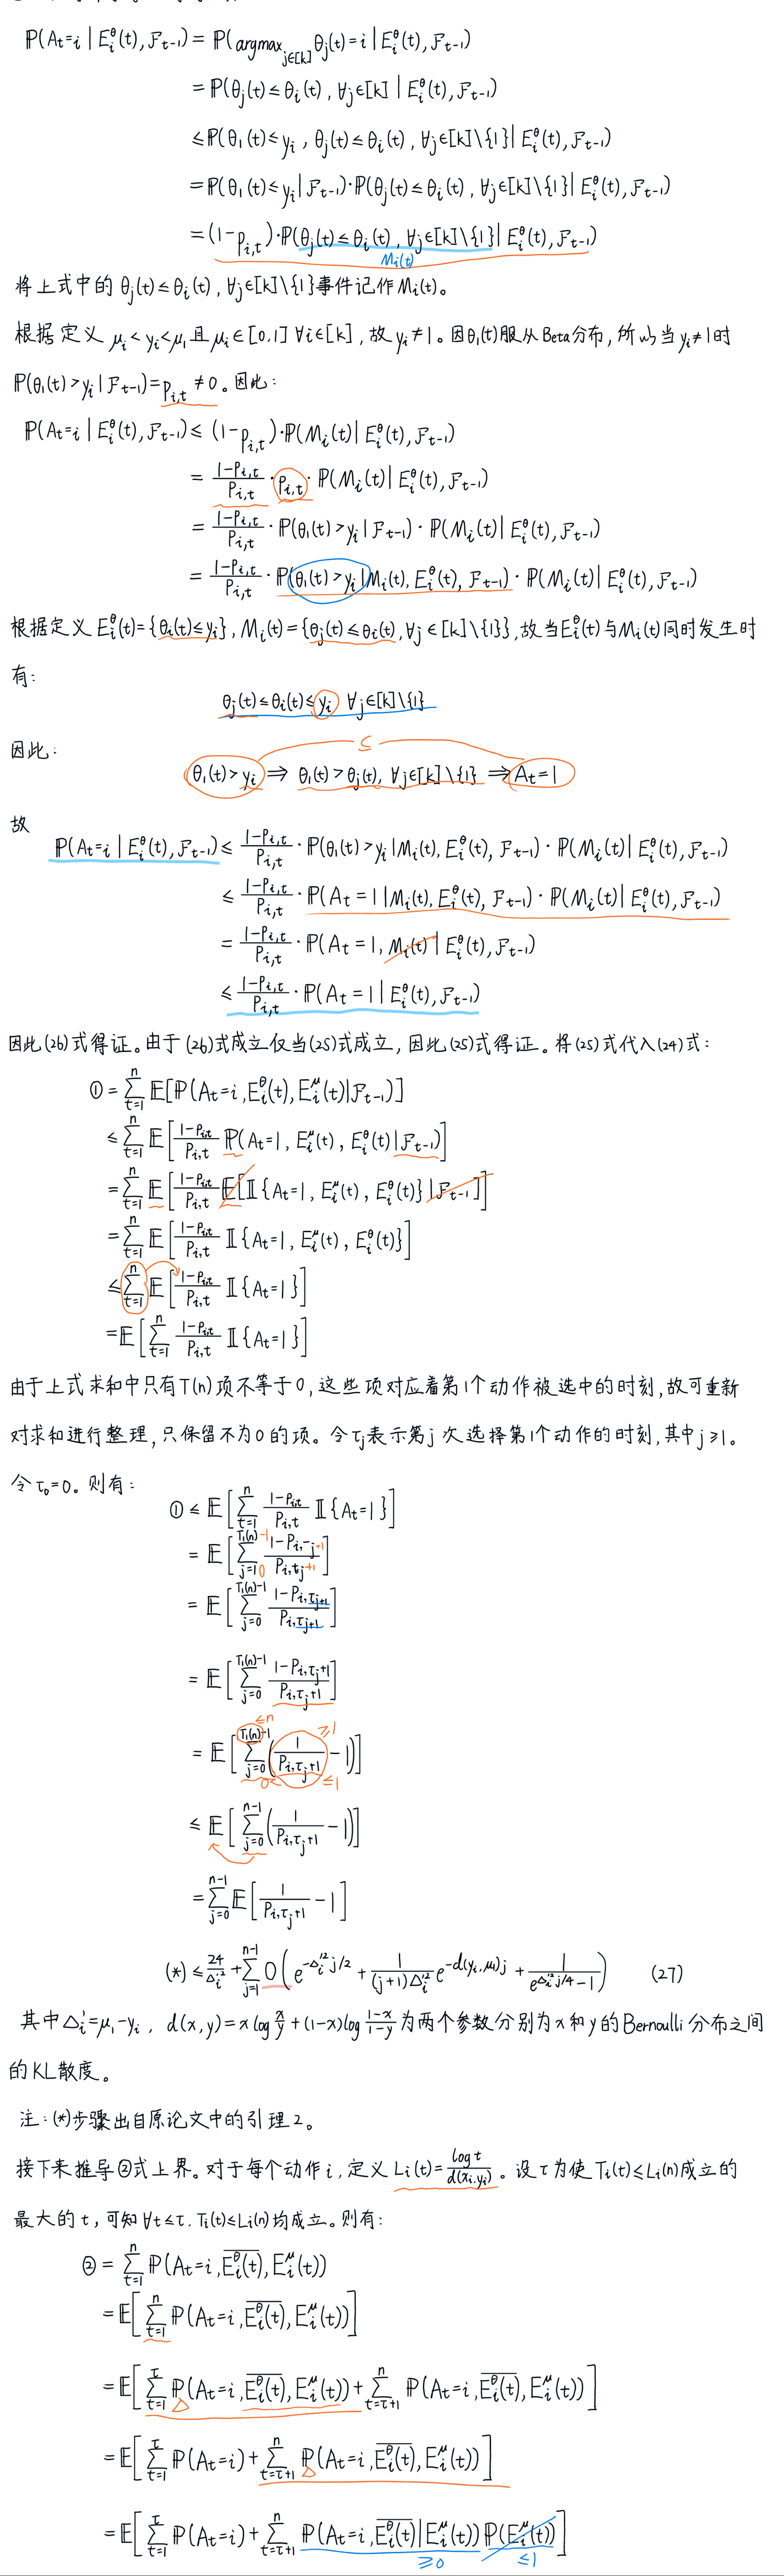 P(At=i | Ei^θ(t), F_{t-1}) = P(argmax_{j∈[k]} θj(t)=i | Ei^θ(t), F_{t-1})
= P(θj(t)≤θi(t), ∀j∈[k] | Ei^θ(t), F_{t-1})
≤ P(θ1(t)≤yi, θj(t)≤θi(t), ∀j∈[k]\{1} | Ei^θ(t), F_{t-1})
= P(θ1(t)≤yi | F_{t-1})·P(θj(t)≤θi(t), ∀j∈[k]\{1} | Ei^θ(t), F_{t-1})
= (1-p_{i,t})·P(θj(t)≤θi(t), ∀j∈[k]\{1} | Ei^θ(t), F_{t-1})
Mi(t)
将上式中的 θj(t)≤θi(t), ∀j∈[k]\{1}事件记作Mi(t)。
根据定义 μi<yi<μ1 且 μi∈[0,1] ∀i∈[k], 故 yi≠1。因θ1(t)服从Beta分布, 所以当 yi≠1时
P(θ1(t)>yi | F_{t-1})=p_{i,t} ≠0。因此:
P(At=i | Ei^θ(t), F_{t-1}) ≤ (1-p_{i,t})·P(Mi(t) | Ei^θ(t), F_{t-1})
= (1-p_{i,t})/p_{i,t} · p_{i,t} · P(Mi(t) | Ei^θ(t), F_{t-1})
= (1-p_{i,t})/p_{i,t} · P(θ1(t)>yi | F_{t-1}) · P(Mi(t) | Ei^θ(t), F_{t-1})
= (1-p_{i,t})/p_{i,t} · P(θ1(t)>yi | Mi(t), Ei^θ(t), F_{t-1}) · P(Mi(t) | Ei^θ(t), F_{t-1})
根据定义 Ei^θ(t)={θi(t)≤yi}, Mi(t)={θj(t)≤θi(t), ∀j∈[k]\{1}}, 故当Ei^θ(t)与Mi(t)同时发生时
有:
θj(t)≤θi(t)≤yi ∀j∈[k]\{1}
因此:
⊆
θ1(t)>yi ⇒ θ1(t)>θj(t), ∀j∈[k]\{1} ⇒ At=1
故
P(At=i | Ei^θ(t), F_{t-1}) ≤ (1-p_{i,t})/p_{i,t} · P(θ1(t)>yi | Mi(t), Ei^θ(t), F_{t-1}) · P(Mi(t) | Ei^θ(t), F_{t-1})
≤ (1-p_{i,t})/p_{i,t} · P(At=1 | Mi(t), Ei^θ(t), F_{t-1}) · P(Mi(t) | Ei^θ(t), F_{t-1})
= (1-p_{i,t})/p_{i,t} · P(At=1, Mi(t) | Ei^θ(t), F_{t-1})
≤ (1-p_{i,t})/p_{i,t} · P(At=1 | Ei^θ(t), F_{t-1})
因此(26)式得证。由于(26)式成立仅当(25)式成立, 因此(25)式得证。将(25)式代入(24)式:
① = ∑_{t=1}^{n} E[P(At=i, Ei^θ(t), Ei^μ(t) | F_{t-1})]
≤ ∑_{t=1}^{n} E[(1-p_{i,t})/p_{i,t} P(At=1, Ei^μ(t), Ei^θ(t) | F_{t-1})]
= ∑_{t=1}^{n} E[(1-p_{i,t})/p_{i,t} E[I{At=1, Ei^μ(t), Ei^θ(t)} | F_{t-1}]]
= ∑_{t=1}^{n} E[(1-p_{i,t})/p_{i,t} I{At=1, Ei^μ(t), Ei^θ(t)}]
≤ ∑_{t=1}^{n} E[(1-p_{i,t})/p_{i,t} I{At=1}]
= E[∑_{t=1}^{n} (1-p_{i,t})/p_{i,t} I{At=1}]
由于上式求和中只有T(n)项不等于0, 这些项对应着第1个动作被选中的时刻, 故可重新
对求和进行整理, 只保留不为0的项。令τj表示第j次选择第1个动作的时刻, 其中j≥1。
令τ0=0。则有:
① ≤ E[∑_{t=1}^{n} (1-p_{i,t})/p_{i,t} I{At=1}]
= E[∑_{j=1 0}^{T1(n) -1} (1-p_{i,τj +1})/p_{i,τj +1}]
= E[∑_{j=0}^{T1(n)-1} (1-p_{i,τ_{j+1}})/p_{i,τ_{j+1}}]
= E[∑_{j=0}^{T1(n)-1} (1-p_{i,τj+1})/p_{i,τj+1}]
≤n ≥1
= E[∑_{j=0}^{T1(n)-1} (1/p_{i,τj+1} - 1)]
0< ≤1
≤ E[∑_{j=0}^{n-1} (1/p_{i,τj+1} - 1)]
= ∑_{j=0}^{n-1} E[1/p_{i,τj+1} - 1]
(*) ≤ 24/Δi'^2 + ∑_{j=1}^{n-1} O(e^{-Δi'^2 j/2} + 1/((j+1)Δi'^2) e^{-d(yi,μ1)j} + 1/(e^{Δi'^2 j/4}-1)) (27)
其中 Δi'=μ1-yi, d(x,y)=x log x/y + (1-x)log (1-x)/(1-y) 为两个参数分别为x和y的Bernoulli分布之间
的KL散度。
注: (*)步骤出自原论文中的引理2。
接下来推导②式上界。对于每个动作i, 定义 Li(t)=log t/d(xi,yi)。设τ为使Ti(t)≤Li(n)成立的
最大的t, 可知 ∀t≤τ, Ti(t)≤Li(n)均成立。则有:
② = ∑_{t=1}^{n} P(At=i, \overline{Ei^θ(t)}, Ei^μ(t))
= E[∑_{t=1}^{n} P(At=i, \overline{Ei^θ(t)}, Ei^μ(t))]
= E[∑_{t=1}^{τ} P(At=i, \overline{Ei^θ(t)}, Ei^μ(t)) + ∑_{t=τ+1}^{n} P(At=i, \overline{Ei^θ(t)}, Ei^μ(t))]
= E[∑_{t=1}^{τ} P(At=i) + ∑_{t=τ+1}^{n} P(At=i, \overline{Ei^θ(t)}, Ei^μ(t))]
= E[∑_{t=1}^{τ} P(At=i) + ∑_{t=τ+1}^{n} P(At=i, \overline{Ei^θ(t)} | Ei^μ(t)) P(Ei^μ(t))]
≥0 ≤1